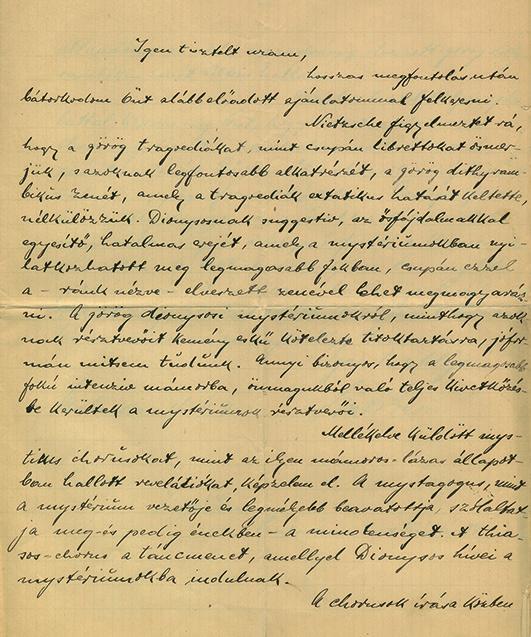 Igen tisztelt uram,
hosszas megfontolás után
bátorkodom Önt alább előadott ajánlatommal felkeresni.
Nietzsche figyelmeztet rá,
hogy a görög tragédiákat, mint csupán librettokat ösmer-
jük, s azoknak legfontosabb alkatrészét, a görög dithyram-
bikus zenét, amely a tragédiák extatikus hatását keltette,
nélkülözzük. Dionysosnak suggestiv, az ősfájdalmakkal
egyesítő, hatalmas erejét, amely a mystériumokban nyi-
latkozhatott meg legmagasabb fokban, csupán ezzel
a - ránk nézve - elveszett zenével lehet megmagyaráz-
ni. A görög dionysosi mystériumokról, minthogy azok-
nak résztvevőit kemény eskü kötelezte titoktartásra, jófor-
mán mitsem tudunk. Annyi bizonyos, hogy a legmagasabb
fokú intenziv mámorba, önmagukból való teljes kivetkőzés-
be kerültek a mystériumok résztvevői.
Mellékelve küldött mys-
tikus chorusokat, mint az ilyen mámoros-lázas állapot-
ban hallott revelátiókat, képzelem el. A mystagogus, mint
a mystérium vezetője és legmélyebb beavatottja, szólaltat-
ja meg - és pedig énekben - a mindenséget. A thia-
sos-chorus a táncmenet, amellyel Dionysos hívei a
mystériumokba indulnak.
A chorusok írása közben